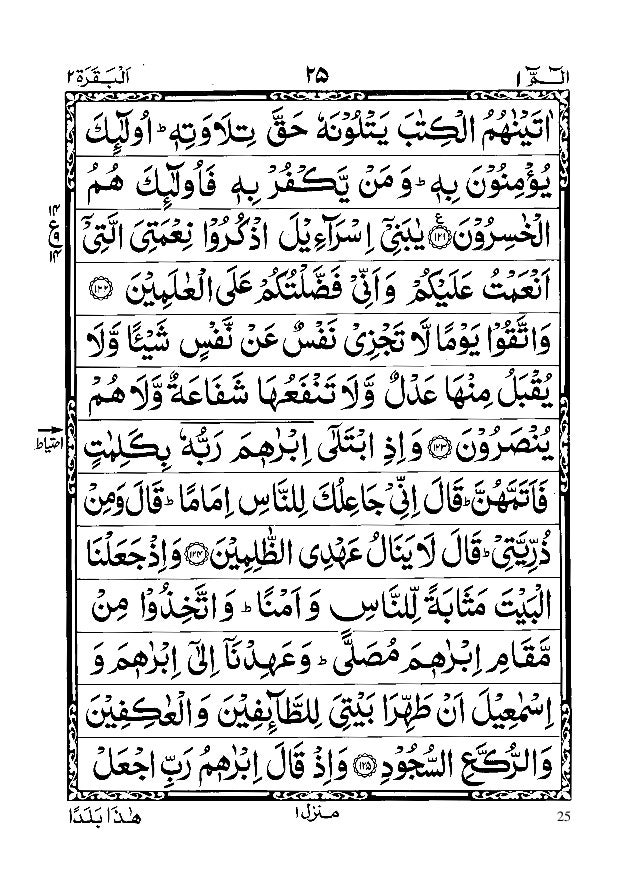 الٓمّٓ ١ ٢٥ اَلْبَقَرَة ٢
اٰتَيْنٰهُمُ الْكِتٰبَ يَتْلُوْنَهٗ حَقَّ تِلَاوَتِهٖ ؕ اُولٰٓئِكَ
يُؤْمِنُوْنَ بِهٖ ؕ وَ مَنْ يَّكْفُرْ بِهٖ فَاُولٰٓئِكَ هُمُ
الْخٰسِرُوْنَ ﴿۱۲۱﴾ ع يٰبَنِيْۤ اِسْرَآءِيْلَ اذْكُرُوْا نِعْمَتِيَ الَّتِيْۤ
١٤ ع ٩ ١٤
اَنْعَمْتُ عَلَيْكُمْ وَ اَنِّيْ فَضَّلْتُكُمْ عَلَى الْعٰلَمِيْنَ ﴿۱۲۲﴾
وَ اتَّقُوْا يَوْمًا لَّا تَجْزِيْ نَفْسٌ عَنْ نَّفْسٍ شَيْـًٔا وَّ لَا
يُقْبَلُ مِنْهَا عَدْلٌ وَّ لَا تَنْفَعُهَا شَفَاعَةٌ وَّ لَا هُمْ
يُنْصَرُوْنَ ﴿۱۲۳﴾ وَ اِذِ ابْتَلٰۤى اِبْرٰهٖمَ رَبُّهٗ بِكَلِمٰتٍ
احتیاط
فَاَتَمَّهُنَّ ؕ قَالَ اِنِّيْ جَاعِلُكَ لِلنَّاسِ اِمَامًا ؕ قَالَ وَ مِنْ
ذُرِّيَّتِيْ ؕ قَالَ لَا يَنَالُ عَهْدِي الظّٰلِمِيْنَ ﴿۱۲۴﴾ وَ اِذْ جَعَلْنَا
الْبَيْتَ مَثَابَةً لِّلنَّاسِ وَ اَمْنًا ؕ وَ اتَّخِذُوْا مِنْ
مَّقَامِ اِبْرٰهٖمَ مُصَلًّى ؕ وَ عَهِدْنَاۤ اِلٰۤى اِبْرٰهٖمَ وَ
اِسْمٰعِيْلَ اَنْ طَهِّرَا بَيْتِيَ لِلطَّآئِفِيْنَ وَ الْعٰكِفِيْنَ
وَ الرُّكَّعِ السُّجُوْدِ ﴿۱۲۵﴾ وَ اِذْ قَالَ اِبْرٰهٖمُ رَبِّ اجْعَلْ
25 منزل ١ هٰذَا بَلَدًا